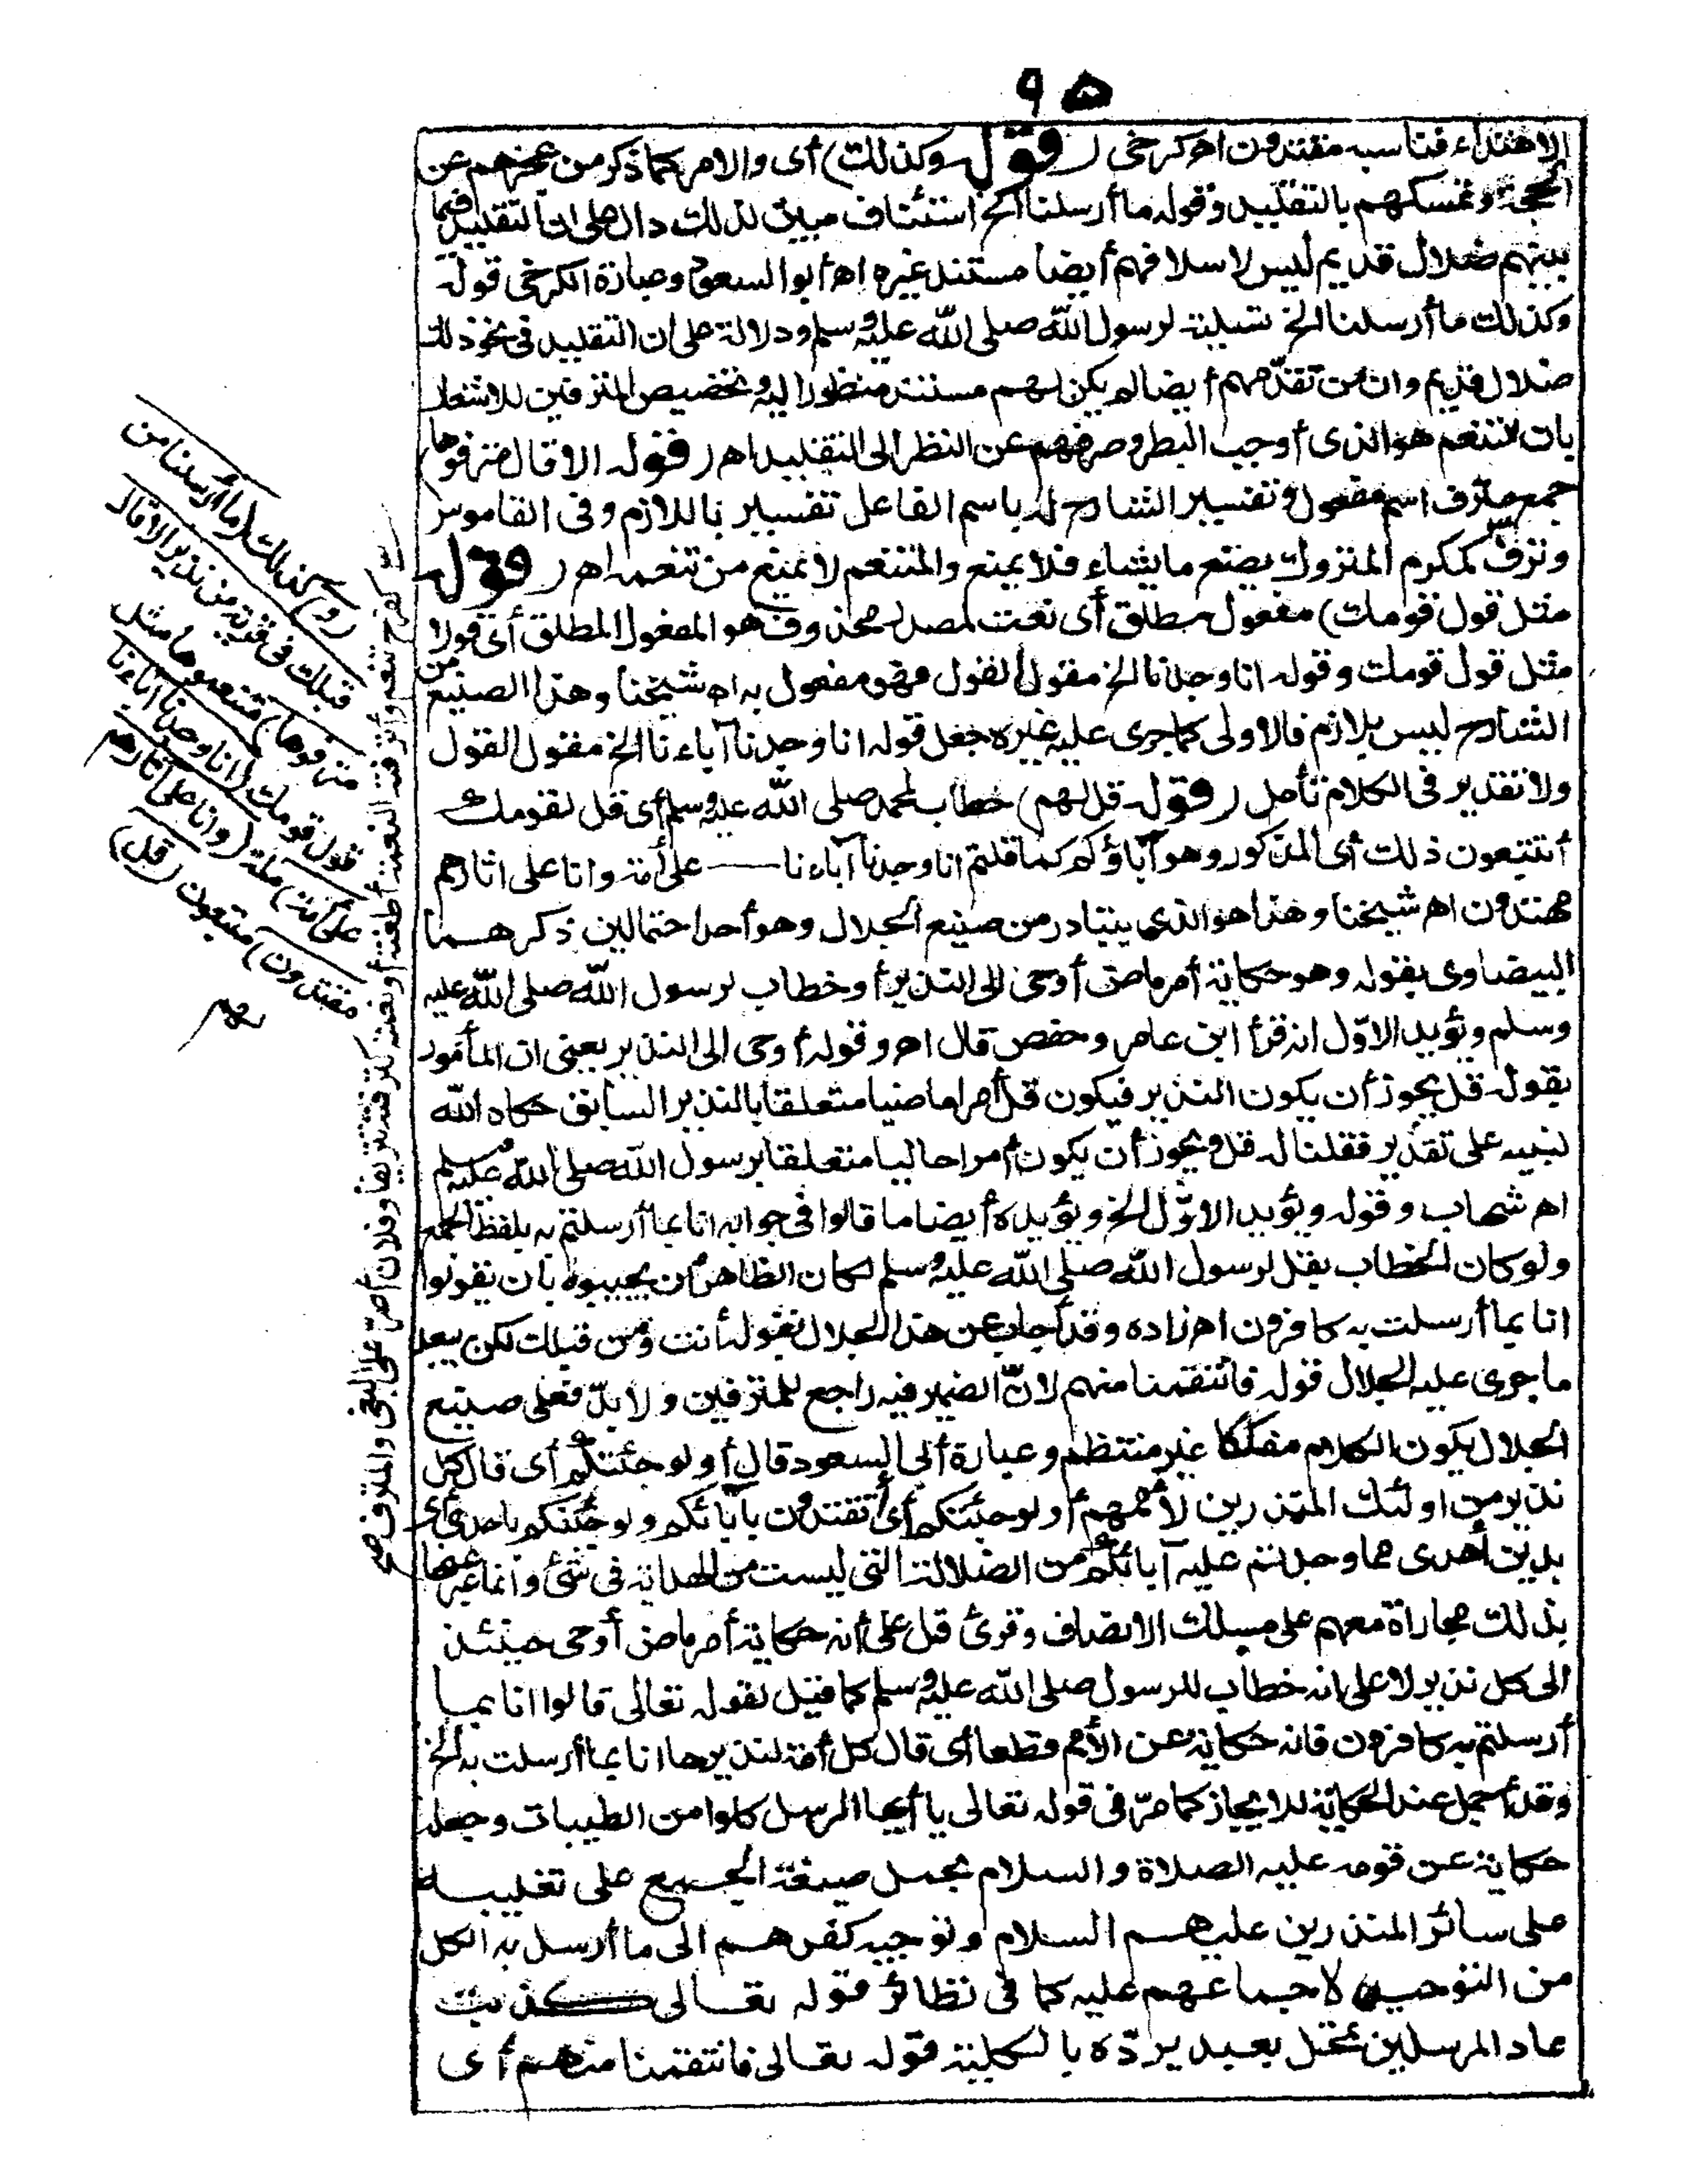 ٩٥
الاهتداء فناسبه مقتدون اه كرخى (قوله وكذلك) أى والامر كما ذكر من عجزهم عن
الحجة وتمسكهم بالتقليد وقوله ما أرسلنا الخ استئناف مبين لذلك دال على ان التقليد فيما
بينهم ضلال قديم ليس لاسلافهم أيضا مستند غيره اه أبو السعود وعبارة الكرخى قوله
وكذلك ما أرسلنا الخ تسلية لرسول الله صلى الله عليه وسلم ودلالة على ان التقليد فى نحو ذلك
ضلال قديم وان من تقدمهم أيضا لم يكن لهم مستند منظور اليه وتخصيص المترفين للاشعار
بان التنعم هو الذى أوجب البطر وصرفهم عن النظر الى التقليد اه (قوله الا قال مترفوها)
جمع مترف اسم مفعول وتفسير الشارح له باسم الفاعل تفسير باللازم وفى القاموس
وترف كمكرم المتروك يصنع ما يشاء فلا يمنع والمتنعم لا يمنع من تنعمه اه (قوله
مثل قول قومك) مفعول مطلق أى نعت لمصدر محذوف هو المفعول المطلق أى قولا
مثل قول قومك وقوله انا وجدنا الخ مقول القول فهو مفعول به اه شيخنا وهذا الصنيع من
الشارح ليس بلازم فالاولى كما جرى عليه غيره جعل قوله انا وجدنا آباءنا الخ مقول القول
ولا تقدير فى الكلام تأمل (قوله قل لهم) خطاب لمحمد صلى الله عليه وسلم أى قل لقومك
أتتبعون ذلك أى المذكور وهو آباؤكم كما قلتم انا وجدنا آباءنا على أمة وانا على آثارهم
مهتدون اه شيخنا وهذا هو الذى يتبادر من صنيع الجلال وهو أحد احتمالين ذكرهما
البيضاوى بقوله وهو حكاية أمر ماض أوحى الى النذير أو خطاب لرسول الله صلى الله عليه
وسلم ويؤيد الاوّل انه قرأ ابن عامر وحفص قال اه وقوله أوحى الى النذير يعنى ان المأمور
بقوله قل يجوز أن يكون النذير فيكون قل أمرا ماضيا متعلقا بالنذير السابق حكاه الله
لنبيه على تقدير فقلنا له قل ويجوز أن يكون أمرا حاليا متعلقا برسول الله صلى الله عليه وسلم
اه شهاب وقوله ويؤيد الاوّل الخ ويؤيده أيضا ما قالوا فى جوابه انا بما أرسلتم به بلفظ الجمع
ولو كان الخطاب بقل لرسول الله صلى الله عليه وسلم لكان الظاهر أن يجيبوه بان يقولوا
انا بما أرسلت به كافرون اه زاده وقد أجاب عن هذا الجلال بقوله أنت ومن قبلك لكن يبعد
ما جرى عليه الجلال قوله فانتقمنا منهم لانّ الضمير فيه راجع للمترفين ولا بدّ فعلى صنيع
الجلال يكون الكلام مفككا غير منتظم وعبارة أبى السعود قال أو لو جئتكم أى قال كل
نذير من اولئك المنذرين لأممهم أو لو جئتكم أى أتقتدون بآبائكم ولو جئتكم باهدى أى
بدين أهدى مما وجدتم عليه آباءكم من الضلالة التى ليست من الهداية فى شئ وانما عبر عنها
بذلك مجاراة معهم على مسلك الانصاف وقرئ قل على أنه حكاية أمر ماض أوحى حينئذ
الى كل نذير لا على انه خطاب للرسول صلى الله عليه وسلم كما قيل لقوله تعالى قالوا انا بما
أرسلتم به كافرون فانه حكاية عن الأمم قطعا أى قال كل أمة لنذيرها انا بما أرسلت به الخ
وقد أجمل عند الحكاية للايجاز كما مرّ فى قوله تعالى يا أيها الرسل كلوا من الطيبات وجعله
حكاية عن قومه عليه الصلاة والسلام بحمل صيغة الجمع على تغليبه
على سائر المنذرين عليهم السلام وتوجيه كفرهم الى ما أرسل به الكل
من التوحيد لاجماعهم عليه كما فى نظائر قوله تعالى كذبت
عاد المرسلين تمحل بعيد يردّه بالكلية قوله تعالى فانتقمنا منهم أى
(وكذلك ما أرسلنا من
قبلك فى قرية من نذير الا قال
مترفوها) متنعموها مثل
قول قومك (انا وجدنا آباءنا
على أمة) ملة (وانا على آثارهم
مقتدون) متبعون (قل)
لهم
كفرح تنعم وأترفته النعمة أطغته أو نعمته كترفته تتريفا وفلان أصرّ على البغى والمترف